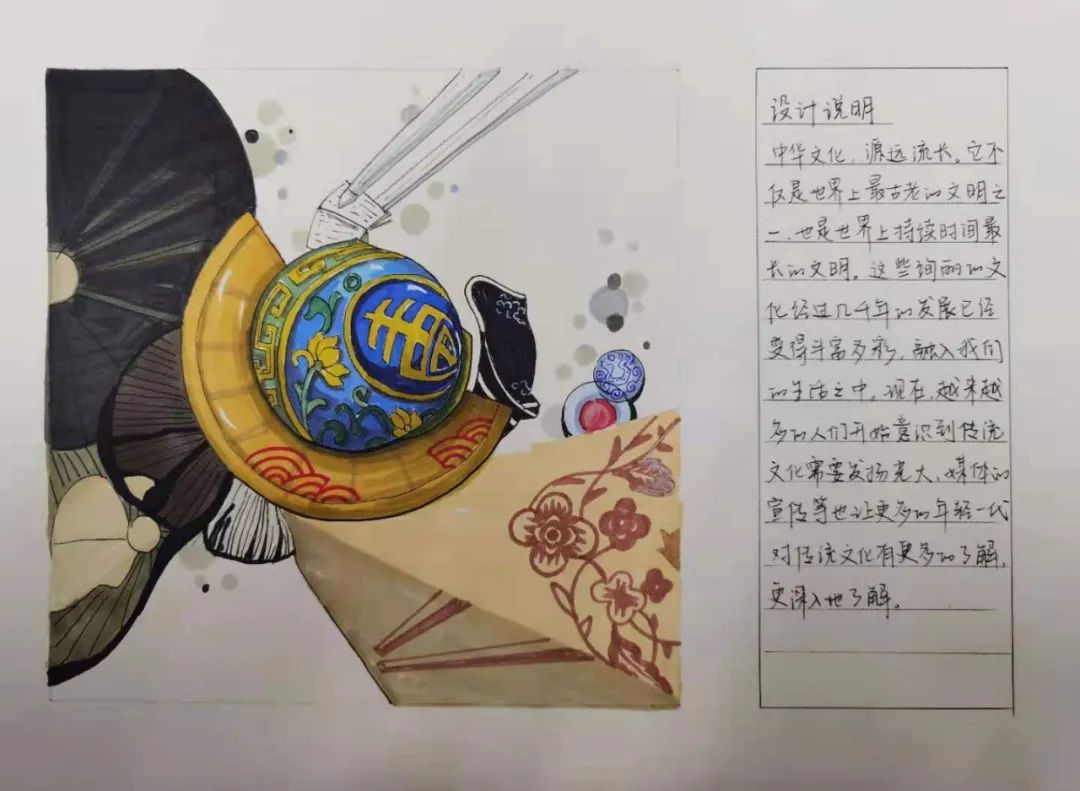 设计说明
中华文化，源远流长。它不
仅是世界上最古老的文明之
一，也是世界上持续时间最
长的文明。这些绚丽的文
化经过几千年的发展已经
变得丰富多彩，融入我们
的生活之中。现在，越来越
多的人们开始意识到传统
文化需要发扬光大，媒体的
宣传等也让更多的年轻一代
对传统文化有更多的了解，
更深入地了解。